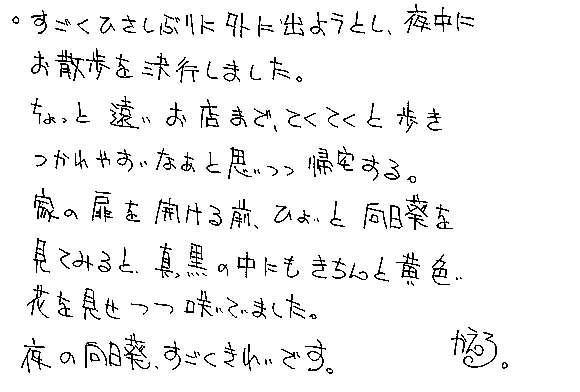 。すごくひさしぶりに外に出ようとし、夜中に
お散歩を決行しました。
ちょっと遠いお店まで、てくてくと歩き
つかれやすいなぁと思いつつ帰宅する。
家の扉を開ける前、ひょいと向日葵を
見てみると、真っ黒の中にもきちんと黄色い
花を見せつつ咲いでました。
夜の向日葵、すごくきれいです。
かえる。